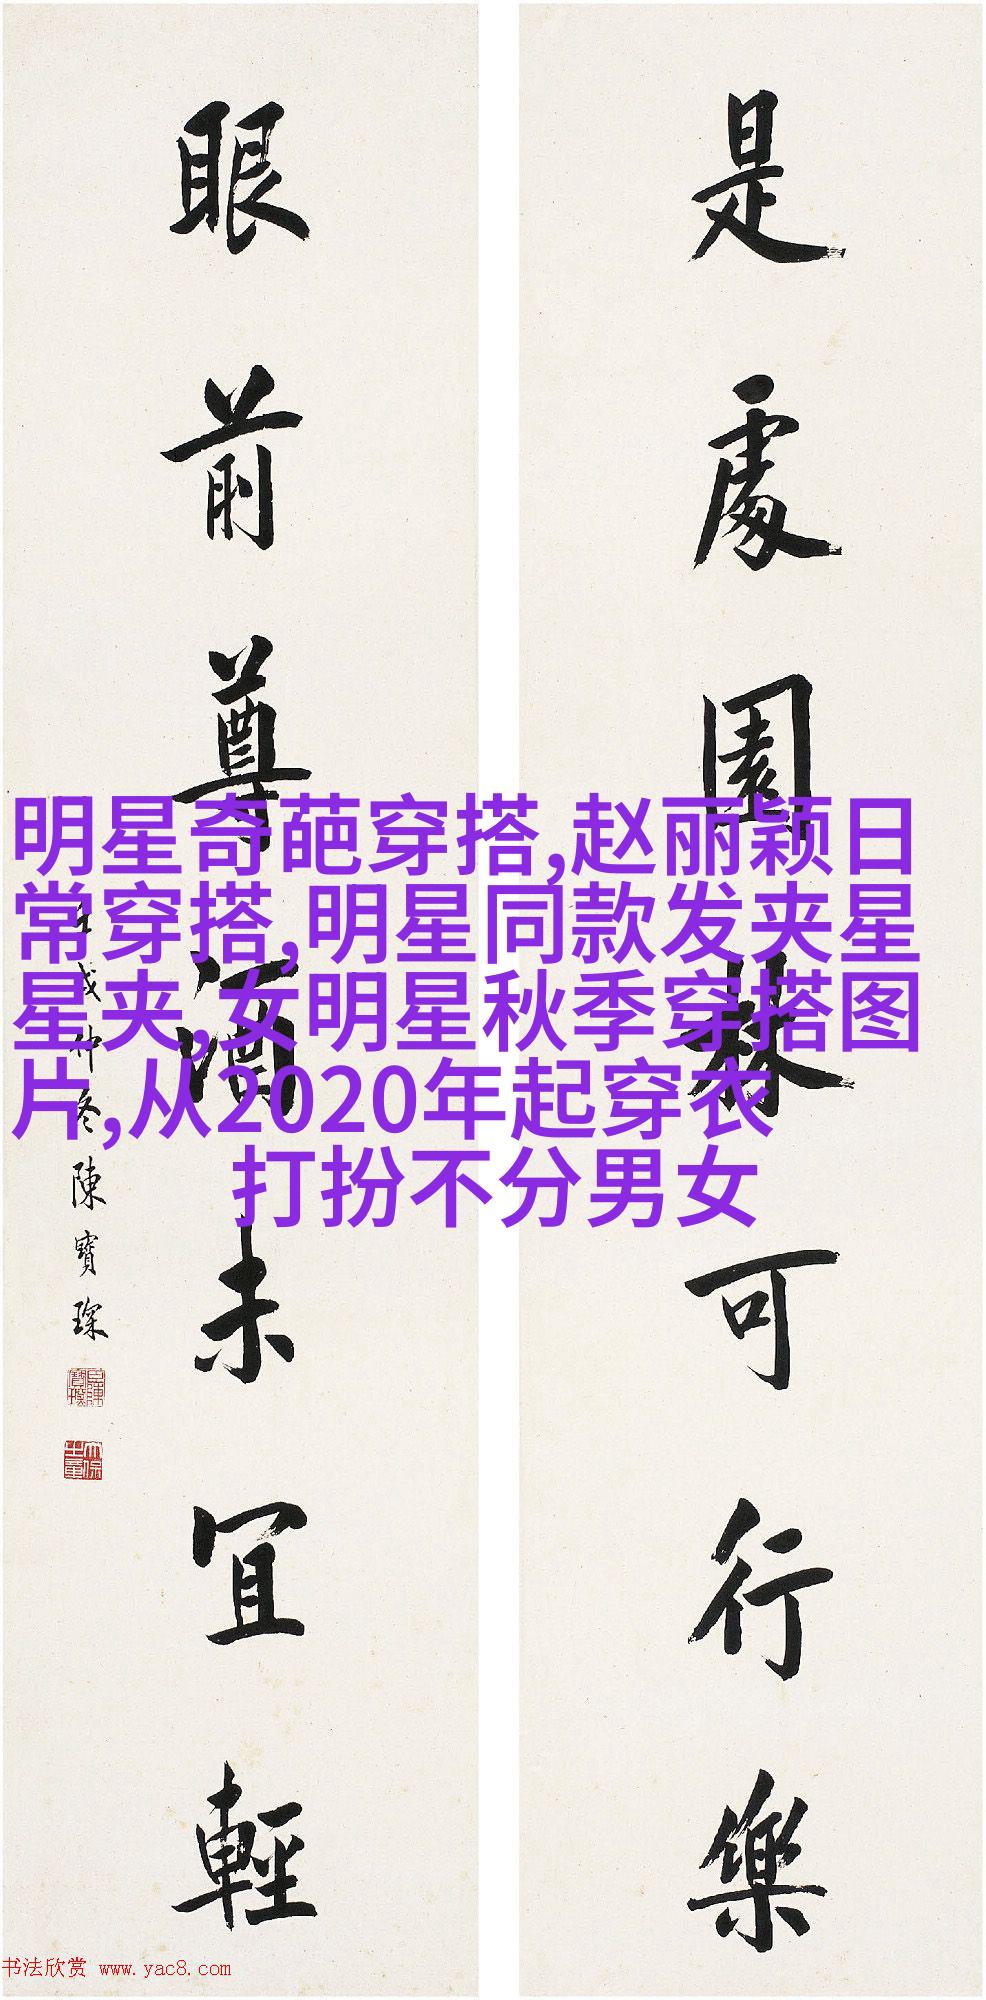 是處園林可行樂
眼前尊酒未宜輕
壬戌仲冬陳寶琛
明星奇葩穿搭,赵丽颖日
常穿搭,明星同款发夹星
星夹,女明星秋季穿搭图
片,从2020年起穿衣
打扮不分男女
书法欣赏 www.yac8.com